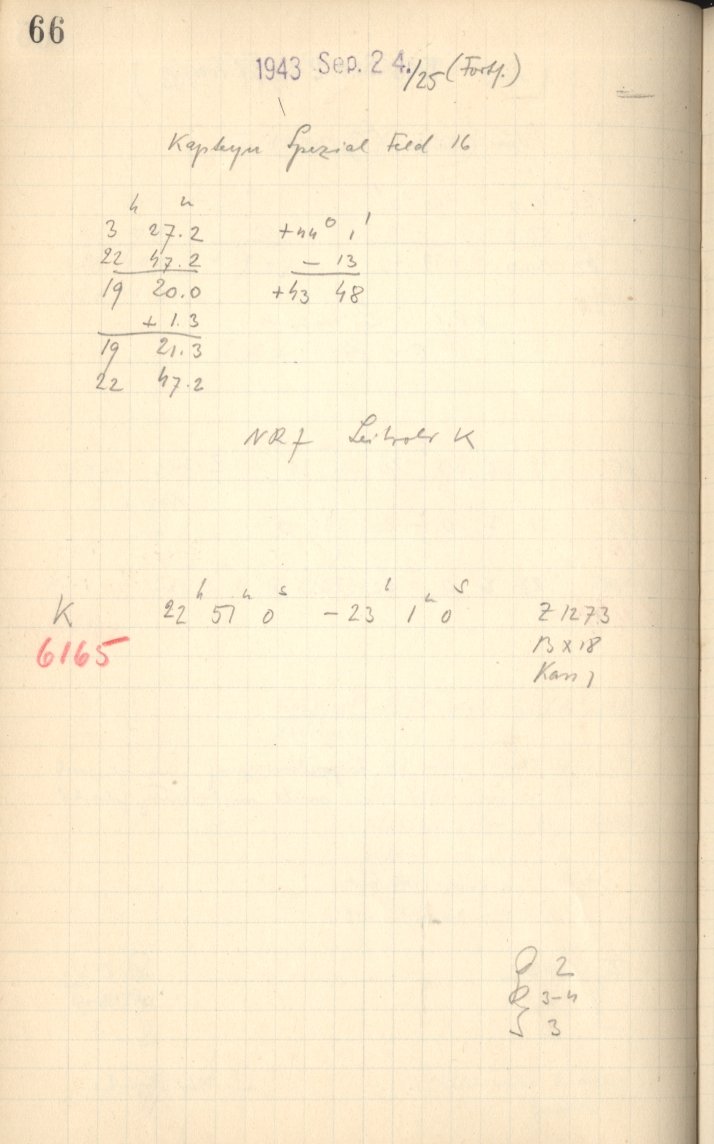 66
1943 Sep. 24./25 (Fortf.)
Kapteyn Spezial Feld 16
h m
3 27.2 +44° 1'
22 47.2 - 13
19 20.0 +43 48
+ 1.3
19 21.3
22 47.2
NR 7 Leitrohr K
K 22h 51m 0s - 23h 1m 0s Z 1273
6165 B X 18
2
3-4
3